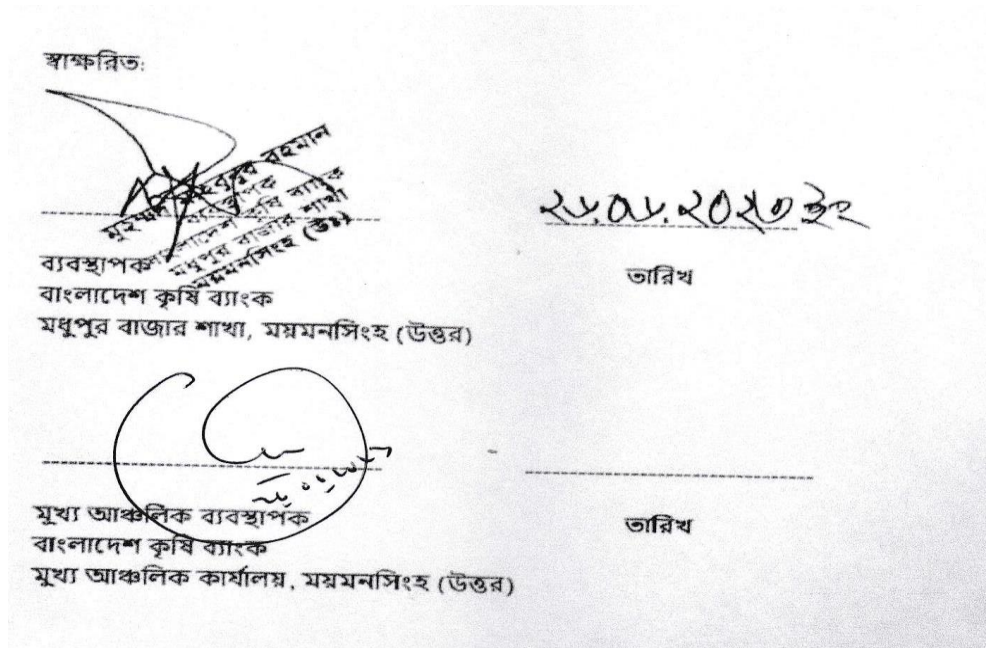 স্বাক্ষরিত:
রহমান
ব্যবস্থাপক
বাংলাদেশ কৃষি ব্যাংক
মধুপুর বাজার শাখা
ময়মনসিংহ (উঃ)
ব্যবস্থাপক
বাংলাদেশ কৃষি ব্যাংক
মধুপুর বাজার শাখা, ময়মনসিংহ (উত্তর)
তারিখ
মুখ্য আঞ্চলিক ব্যবস্থাপক
বাংলাদেশ কৃষি ব্যাংক
মুখ্য আঞ্চলিক কার্যালয়, ময়মনসিংহ (উত্তর)
তারিখ